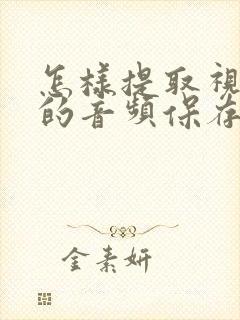 怎樣提取視
的音頻保存
金素妍